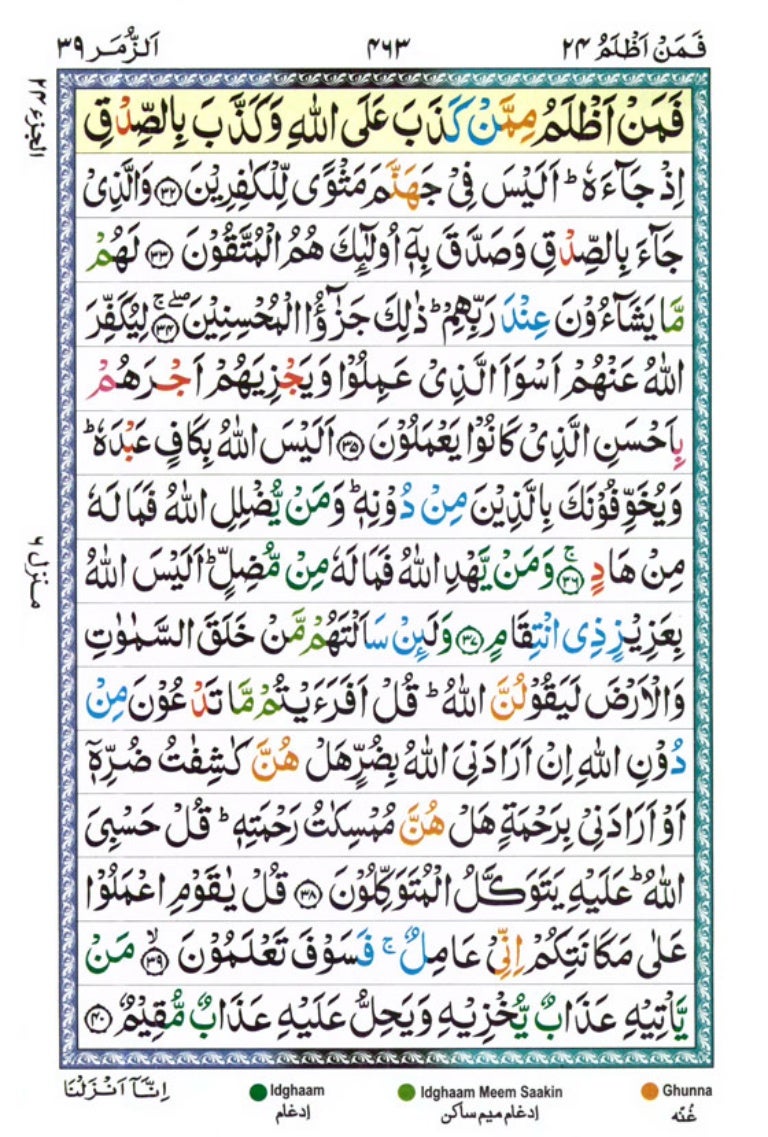 فَمَنْ اَظْلَمُ ٢٤
٤٦٣
اَلزُّمَر ٣٩
الجزء ٢٤
فَمَنْ اَظْلَمُ مِمَّنْ كَذَبَ عَلَى اللّٰهِ وَكَذَّبَ بِالصِّدْقِ
اِذْ جَآءَهٗ ؕ اَلَيْسَ فِىْ جَهَنَّمَ مَثْوًى لِّلْكٰفِرِيْنَ ۝٣٢ وَالَّذِىْ
جَآءَ بِالصِّدْقِ وَصَدَّقَ بِهٖۤ اُولٰٓئِكَ هُمُ الْمُتَّقُوْنَ ۝٣٣ لَهُمْ
مَّا يَشَآءُوْنَ عِنْدَ رَبِّهِمْ ؕ ذٰلِكَ جَزٰٓؤُا الْمُحْسِنِيْنَ ۖۚ ۝٣٤ لِيُكَفِّرَ
اللّٰهُ عَنْهُمْ اَسْوَاَ الَّذِىْ عَمِلُوْا وَيَجْزِيَهُمْ اَجْرَهُمْ
بِاَحْسَنِ الَّذِىْ كَانُوْا يَعْمَلُوْنَ ۝٣٥ اَلَيْسَ اللّٰهُ بِكَافٍ عَبْدَهٗ ؕ
وَيُخَوِّفُوْنَكَ بِالَّذِيْنَ مِنْ دُوْنِهٖ ؕ وَمَنْ يُّضْلِلِ اللّٰهُ فَمَا لَهٗ
مِنْ هَادٍ ۚ ۝٣٦ وَمَنْ يَّهْدِ اللّٰهُ فَمَا لَهٗ مِنْ مُّضِلٍّ ؕ اَلَيْسَ اللّٰهُ
بِعَزِيْزٍ ذِى انْتِقَامٍ ۝٣٧ وَلَئِنْ سَاَلْتَهُمْ مَّنْ خَلَقَ السَّمٰوٰتِ
وَالْاَرْضَ لَيَقُوْلُنَّ اللّٰهُ ؕ قُلْ اَفَرَءَيْتُمْ مَّا تَدْعُوْنَ مِنْ
دُوْنِ اللّٰهِ اِنْ اَرَادَنِىَ اللّٰهُ بِضُرٍّ هَلْ هُنَّ كٰشِفٰتُ ضُرِّهٖۤ
اَوْ اَرَادَنِىْ بِرَحْمَةٍ هَلْ هُنَّ مُمْسِكٰتُ رَحْمَتِهٖ ؕ قُلْ حَسْبِىَ
اللّٰهُ ؕ عَلَيْهِ يَتَوَكَّلُ الْمُتَوَكِّلُوْنَ ۝٣٨ قُلْ يٰقَوْمِ اعْمَلُوْا
عَلٰى مَكَانَتِكُمْ اِنِّىْ عَامِلٌ ۚ فَسَوْفَ تَعْلَمُوْنَ ۙ ۝٣٩ مَنْ
يَّاْتِيْهِ عَذَابٌ يُّخْزِيْهِ وَيَحِلُّ عَلَيْهِ عَذَابٌ مُّقِيْمٌ ۝٤٠
منزل ٦
اِنَّاۤ اَنْزَلْنَا
Idghaam
اِدغام
Idghaam Meem Saakin
اِدغام میم ساکن
Ghunna
غُنّه